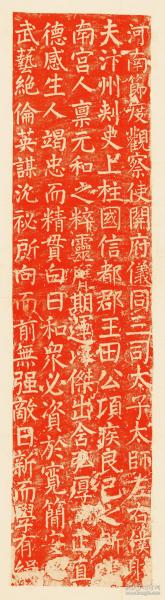 河南節度觀察使開府儀同三司太子太師左右僕射
夫汴州刺史上柱國信都郡王田公頃疾良已之所
南宮人稟元和之粹靈膺期運而傑出含弘厚正直
德感生人竭忠而精貫白日和衆必資於寬簡
武藝絶倫英謀沉祕所向而前無強敵日新而學有緝